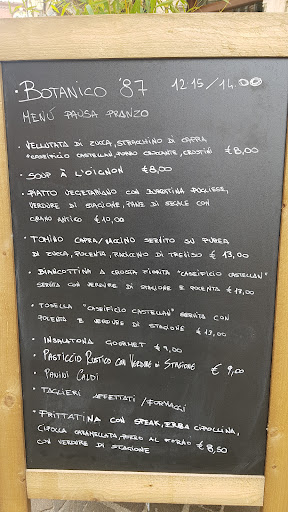 · BOTANICO '87 12.15/14.00
MENÙ PAUSA PRANZO
· VELLUTATA DI ZUCCA, STRACCHINO DI CAPRA
"CASEIFICIO CASTELLAN", PORRO CROCCANTE, CROSTINI €8,00
· SOUP À L'OIGNON €8,00
· PIATTO VEGETARIANO CON BURRATINA PUGLIESE,
VERDURE DI STAGIONE, PANE DI SEGALE CON
GRANO ANTICO € 10,00
· TOMINO CAPRA/VACCINO SERVITO SU PUREA
DI ZUCCA, POLENTA, RADICCHIO DI TREVISO € 13,00
· BIANCOTTINA A CROSTA FIORITA "CASEIFICIO CASTELLAN"
SERVITA CON VERDURE DI STAGIONE E POLENTA €13,00
· TOSELLA "CASEIFICIO CASTELLAN" SERVITA CON
POLENTA E VERDURE DI STAGIONE €13,00
· INSALATONA GOURMET €9,00
· PASTICCIO RUSTICO CON VERDURE DI STAGIONE € 9,00
· PANINI CALDI
· TAGLIERI AFFETTATI/FORMAGGI
· FRITTATINA CON SPEAK, ERBA CIPOLLINA,
CIPOLLA CARAMELLATA, PORRO AL FORNO € 8,50
CON VERDURE DI STAGIONE